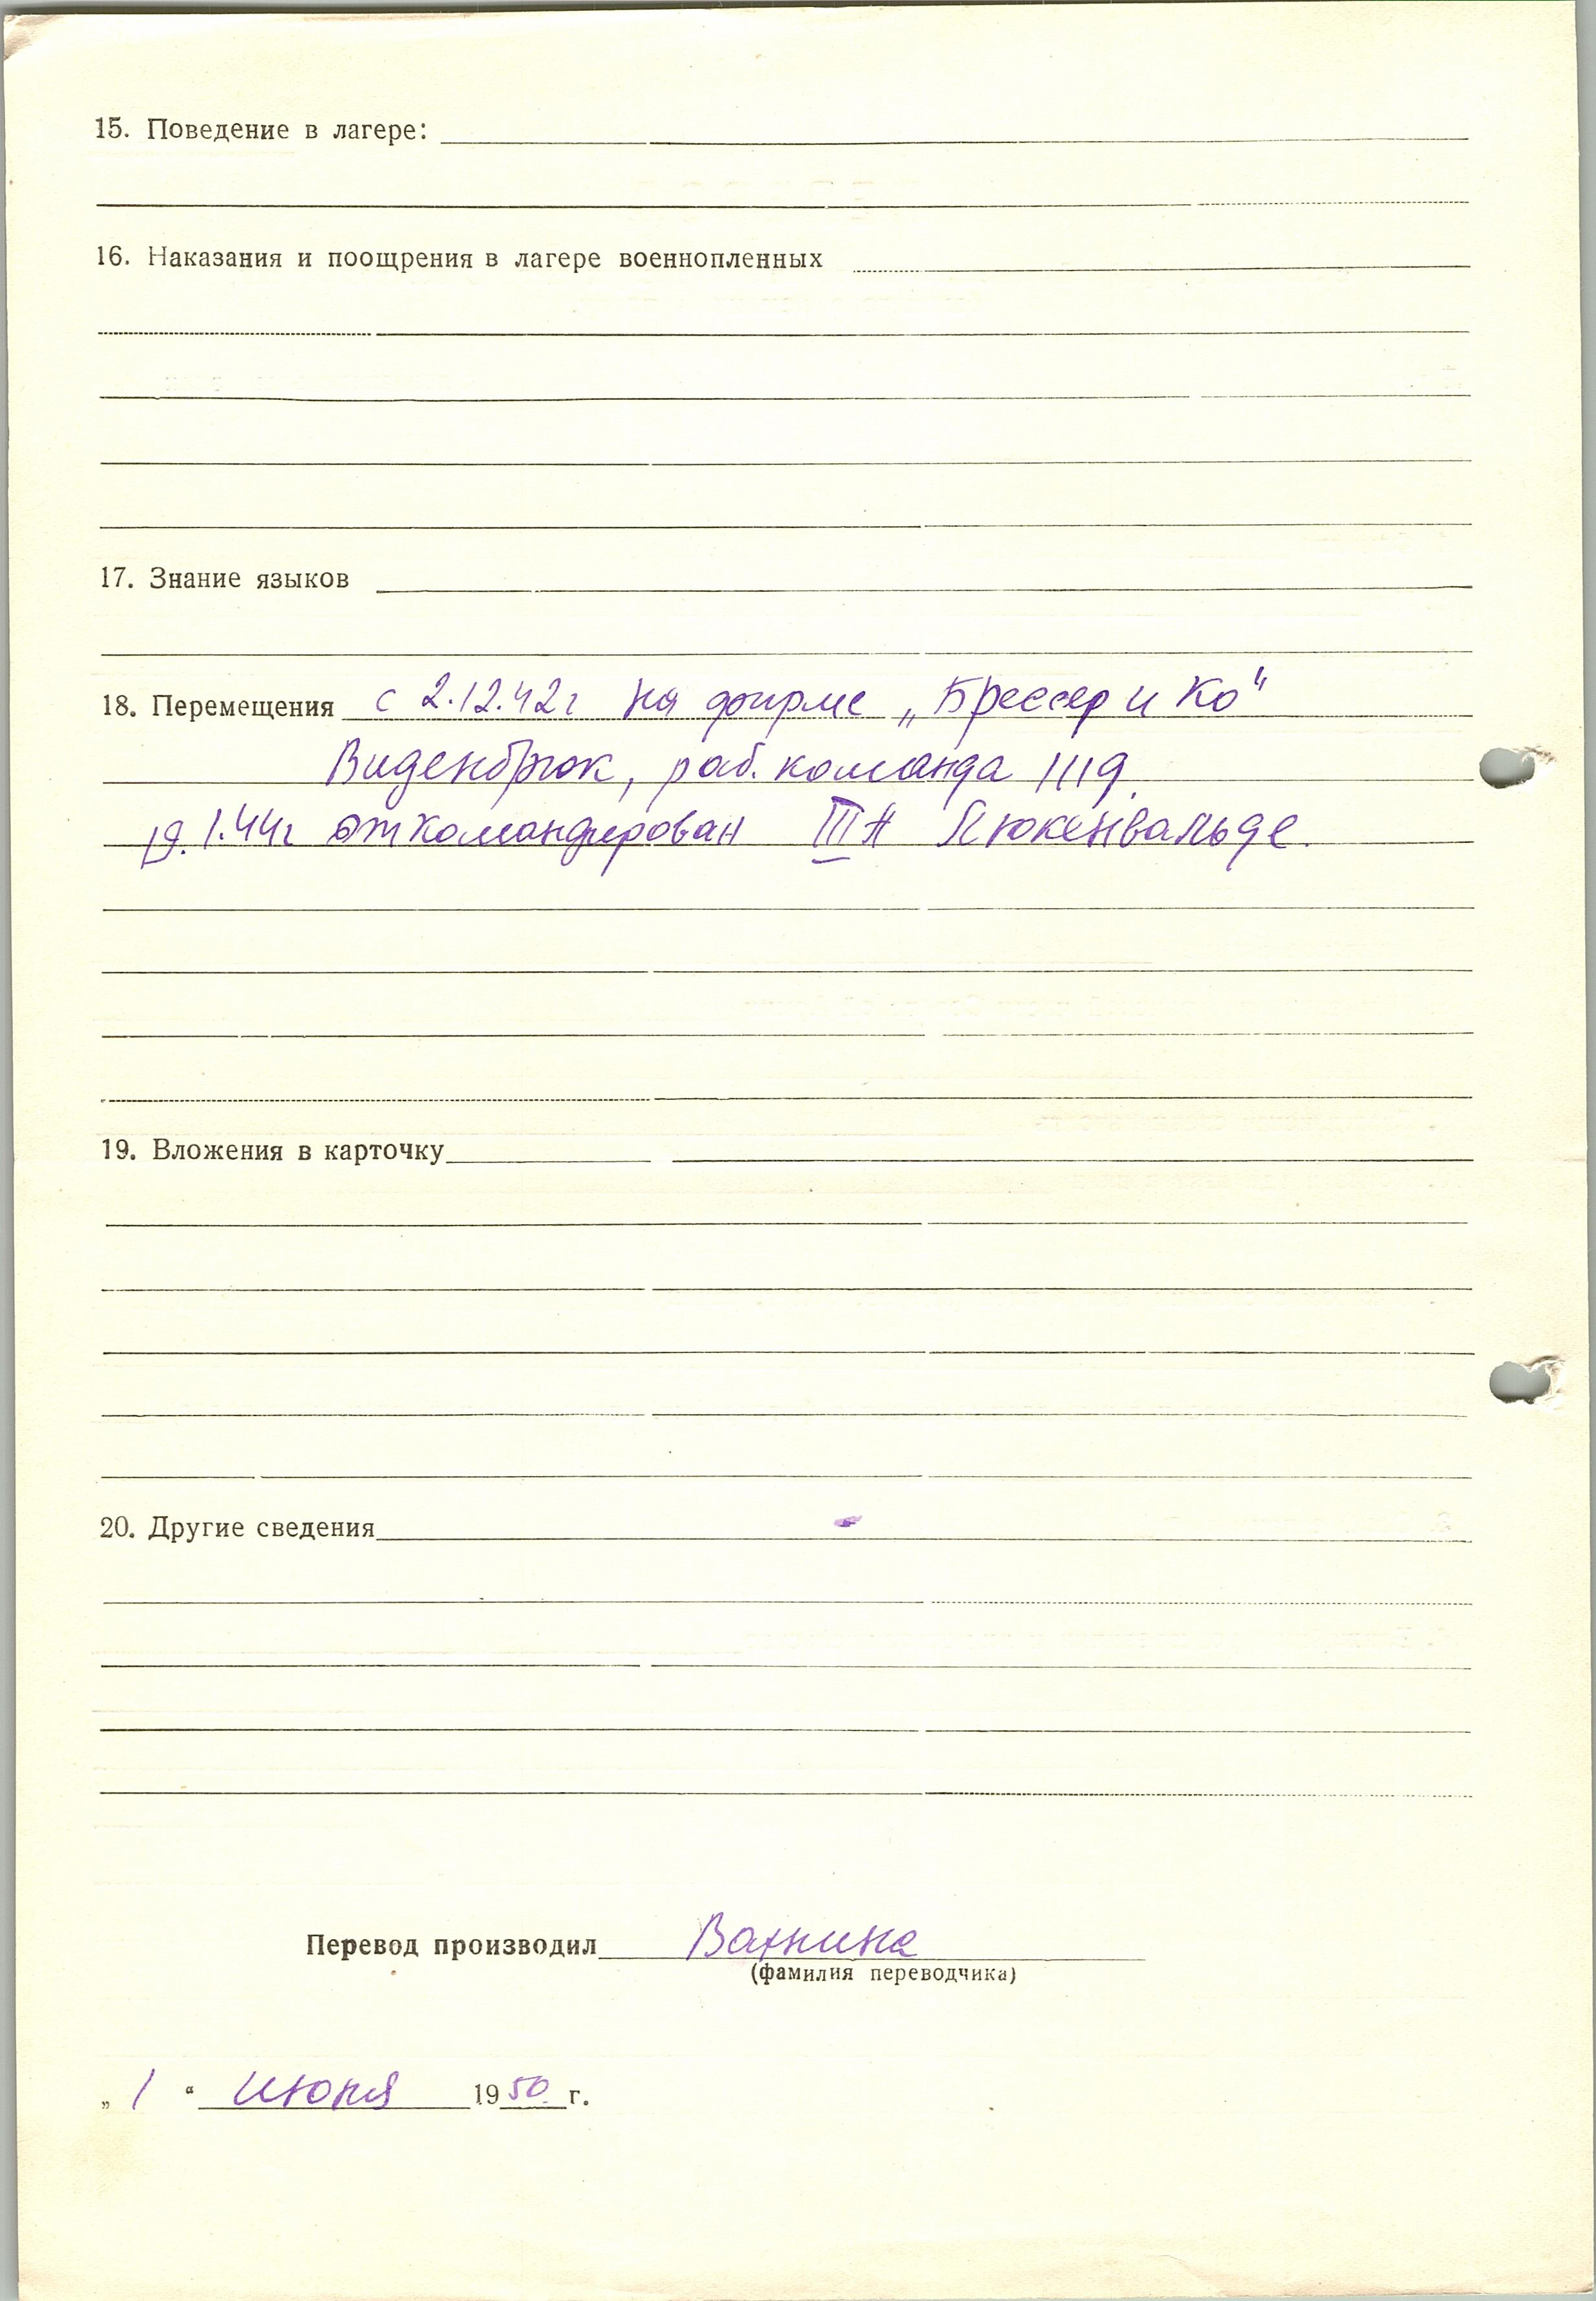 15. Поведение в лагере:
16. Наказания и поощрения в лагере военнопленных
17. Знание языков
18. Перемещения с 2.12.42г на фирме „Брессер и Ко“
Виденбрюк, раб. команда 1119.
19.1.44г откомандирован III А Люкенвальде.
19. Вложения в карточку
20. Другие сведения
Перевод производил Вахнина
(фамилия переводчика)
„ 1 “ июня 1950 г.